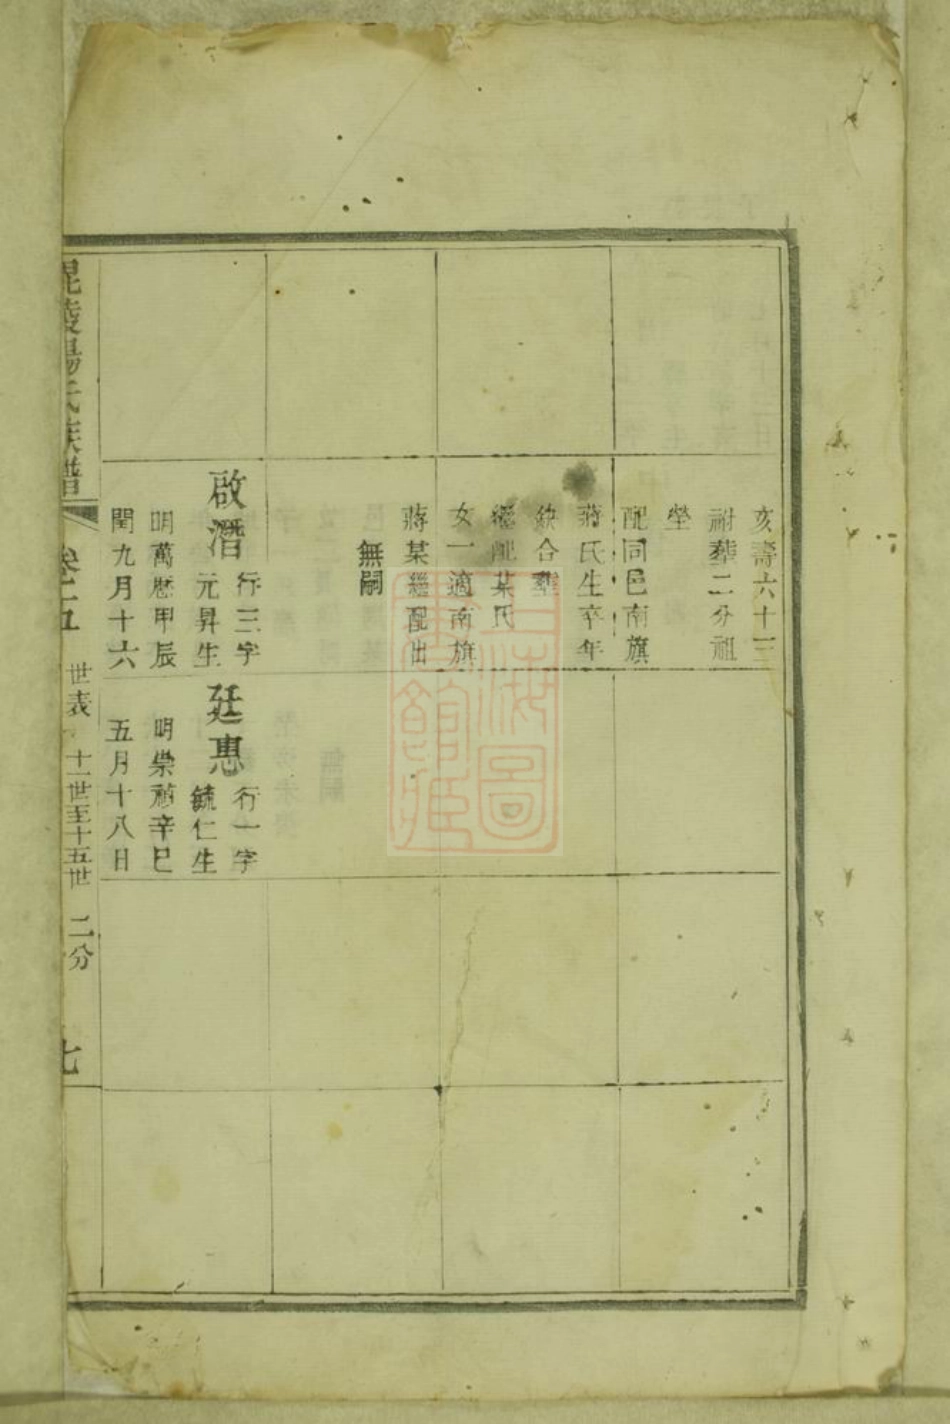 亥壽六十三
祔葬二分祖
塋
配同邑南旗
蔣氏生卒年
缺合葬
繼配某氏
女一適南旗
蔣某繼配出
無嗣
啟潛
行三字
元昇生
明萬歷甲辰
閏九月十六
廷惠
行一字
毓仁生
明崇禎辛巳
五月十八日
毘陵楊氏族譜
卷十五
世表
十一世至十五世
二分
七
上海圖
書館藏